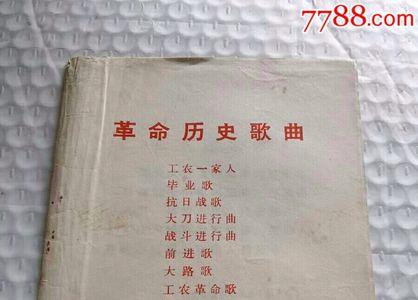 7788.com
革命历史歌曲
工农一家人
毕业歌
抗日战歌
大刀进行曲
战斗进行曲
前进歌
大路歌
工农革命歌